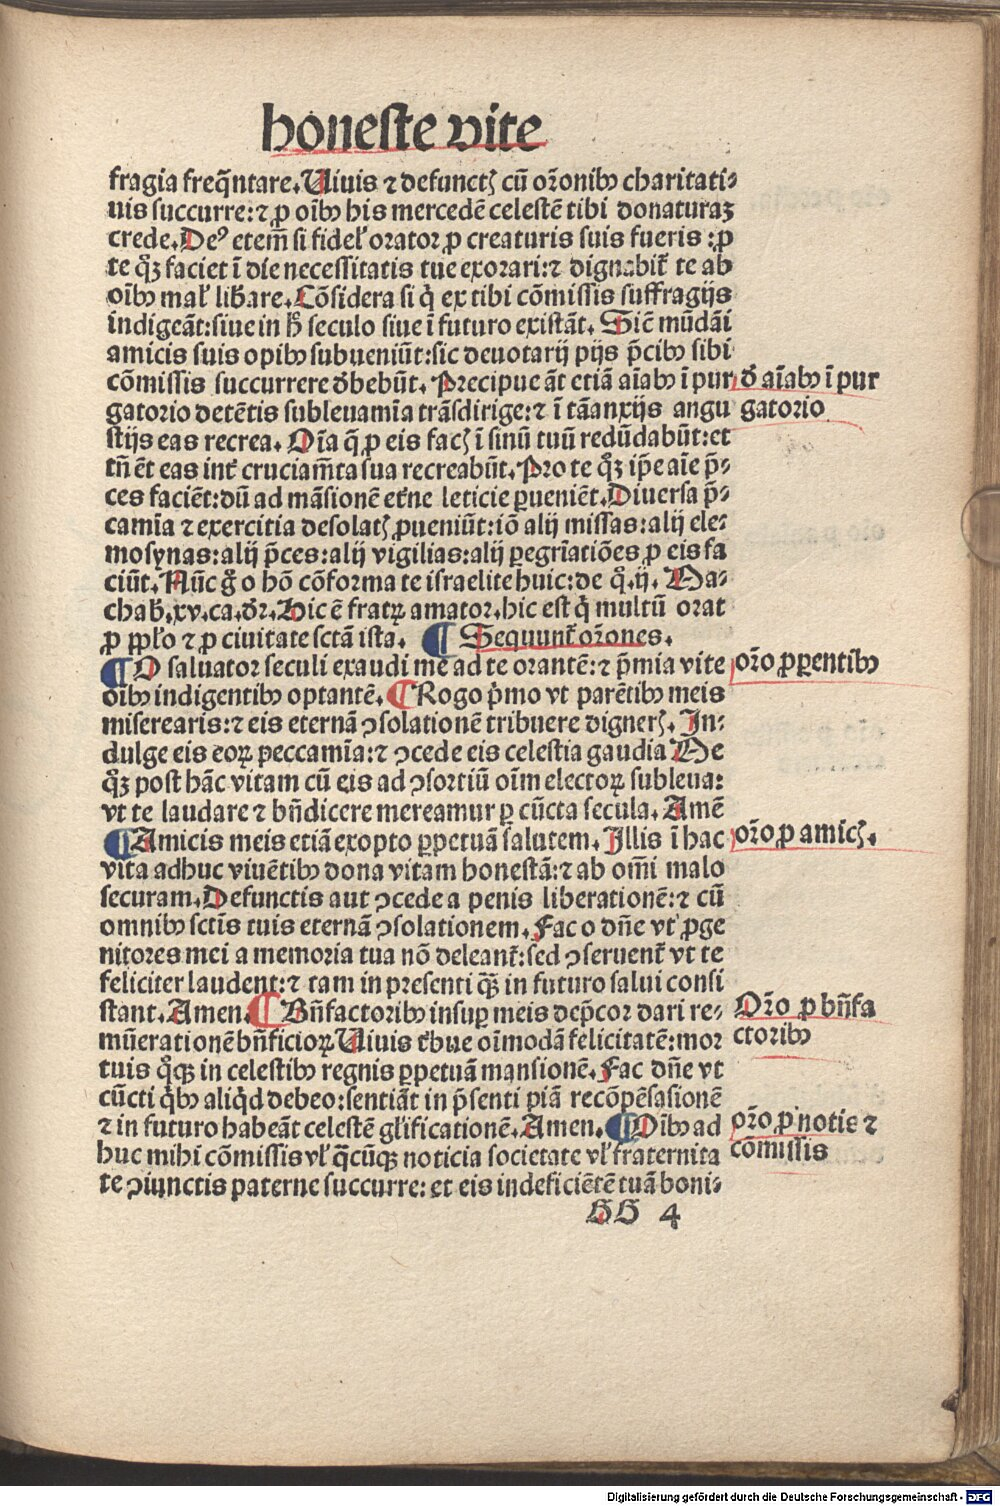 honeste vite
fragia freq̃ntare. Uiuis ⁊ defunctꝭ cũ orõnibꝰ charitati⸗
uis succurre: ⁊ ꝓ oĩbꝰ his mercedẽ celestẽ tibi donaturaꝫ
crede. Deꝰ eteni͂ si fidel̕ orator ꝓ creaturis suis fueris : ꝓ
te qͦꝫ faciet ĩ die necessitatis tue exorari: ⁊ dignabit̃ te ab
oĩbꝰ mal̕ lib̕are. Cõsidera si q̇ ex tibi cõmissis suffragijs
indigeãt: siue in h̕ seculo siue ĩ futuro existãt. Sicẽ mũdãi
amicis suis opibꝰ subueniũt: sic deuotarij pijs p̃cibꝰ sibi
cõmissis succurrere d̕bebũt. Precipue ãt etiã aĩabꝰ ĩ pur
d̕ aĩabꝰ ĩ pur
gatorio detẽtis subleuamĩa trãsdirige: ⁊ ĩ tãanxijs angu
gatorio
stijs eas recrea. Oĩa q̃ ꝓ eis facꝭ ĩ sinũ tuũ redũdabũt: et
tñ ẽt eas int̕ cruciam̃ta sua recreabũt. Pro te qͦꝫ ip̃e aĩe p̃⸗
ces faciẽt: dũ ad mãsionẽ et̕ne leticie ꝑueniẽt. Diuersa p̃⸗
camĩa ⁊ exercitia desolatꝭ ꝓueniũt: iõ alij missas: alij ele⸗
mosynas: alij p̃ces: alij vigilias: alij peregrĩatiões ꝓ eis fa
ciũt. Nũc g̊ o hõ cõforma te israelite huic: de qͦ. ij. Ma⸗
chab̕. xv. ca. d̕r. Hic ẽ fratrꝝ amator. hic est q̇ multũ orat
ꝓ pp̃lo ⁊ ꝓ ciuitate sctã ista. ¶ Sequunt̃ orõnes.
¶ O saluator seculi exaudi me ad te orantẽ: ⁊ p̃mia vite
orõ ꝓ ꝑentibꝰ
oĩbꝰ indigentibꝰ optantẽ. ¶ Rogo p̃mo vt parẽtibꝰ meis
miserearis: ⁊ eis eternã ꝯsolationẽ tribuere dignerꝭ. In⸗
dulge eis eoꝝ peccamĩa: ⁊ ꝯcede eis celestia gaudia Me
qͦꝫ post hãc vitam cũ eis ad ꝯsortiũ oĩm electoꝝ subleua:
vt te laudare ⁊ bñdicere mereamur ꝑ cũcta secula. Amẽ
¶ Amicis meis etiã exopto ꝑpetuã salutem. Illis ĩ hac
orõ ꝓ amicꝭ.
vita adhuc viuẽtibꝰ dona vitam honestã: ⁊ ab om̃i malo
securam. Defunctis aut ꝯcede a penis liberationẽ: ⁊ cũ
omnibꝰ sctĩs tuis eternã ꝯsolationem. Fac o dñe vt ꝓge
nitores mei a memoria tua nõ deleant̃: sed ꝯseruent̃ vt te
feliciter laudent: ⁊ tam in presenti qͣ̃ꝫ in futuro salui consi
stant. Amen. ¶ Bñfactoribꝰ insuꝑ meis dep̃cor dari re⸗
Orõ ꝓ bñfa
mũerationẽ bñficioꝝ. Uiuis t̕bue oĩmodã felicitatẽ: mor
ctoribꝰ
tuis qͦqꝫ in celestibꝰ regnis ꝑpetuã mansionẽ. Fac dñe vt
cũcti q̇bꝰ aliq̇d debeo: sentiãt in p̃senti piã recõpẽsasionẽ
⁊ in futuro habeãt celestẽ gl̕ificationẽ. Amen. ¶ Oĩbꝰ ad
orõ ꝓ notis ⁊
huc mihi cõmissis vl̕ q̃cũqꝫ noticia societate vl̕ fraternita
cõmissis
te ꝯiunctis paterne succurre: et eis indeficiẽtẽ tuã boni⸗
HH 4
Digitalisierung gefördert durch die Deutsche Forschungsgemeinschaft - DFG